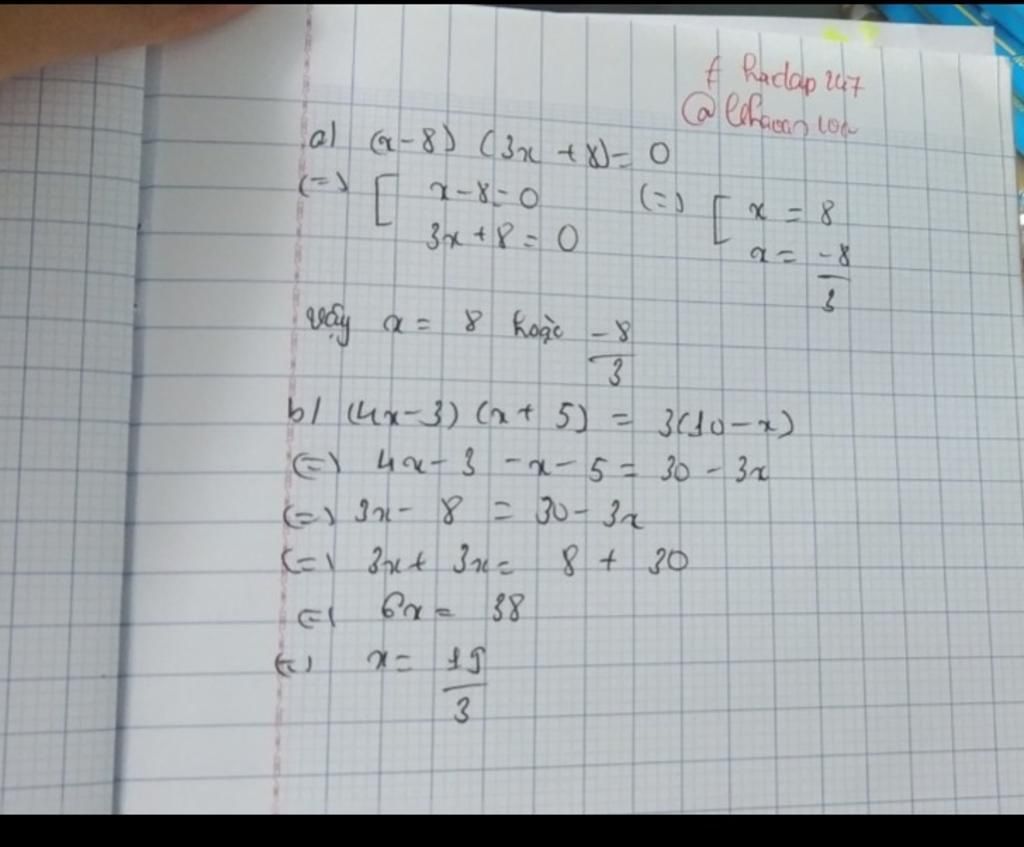 # hoclap247
a) (x-8) (3x+8)=0
(=) [ x-8=0 (=) [ x = 8
3x+8=0 x= -8/3
vậy x= 8 hoặc -8/3
b) (4x-3) (x+ 5) = 3(10-x)
(=) 4x-3 -x-5= 30 - 3x
(=) 3x- 8 = 30- 3x
(=) 3x+ 3x= 8 + 30
(=) 6x= 38
(=) x= 19/3